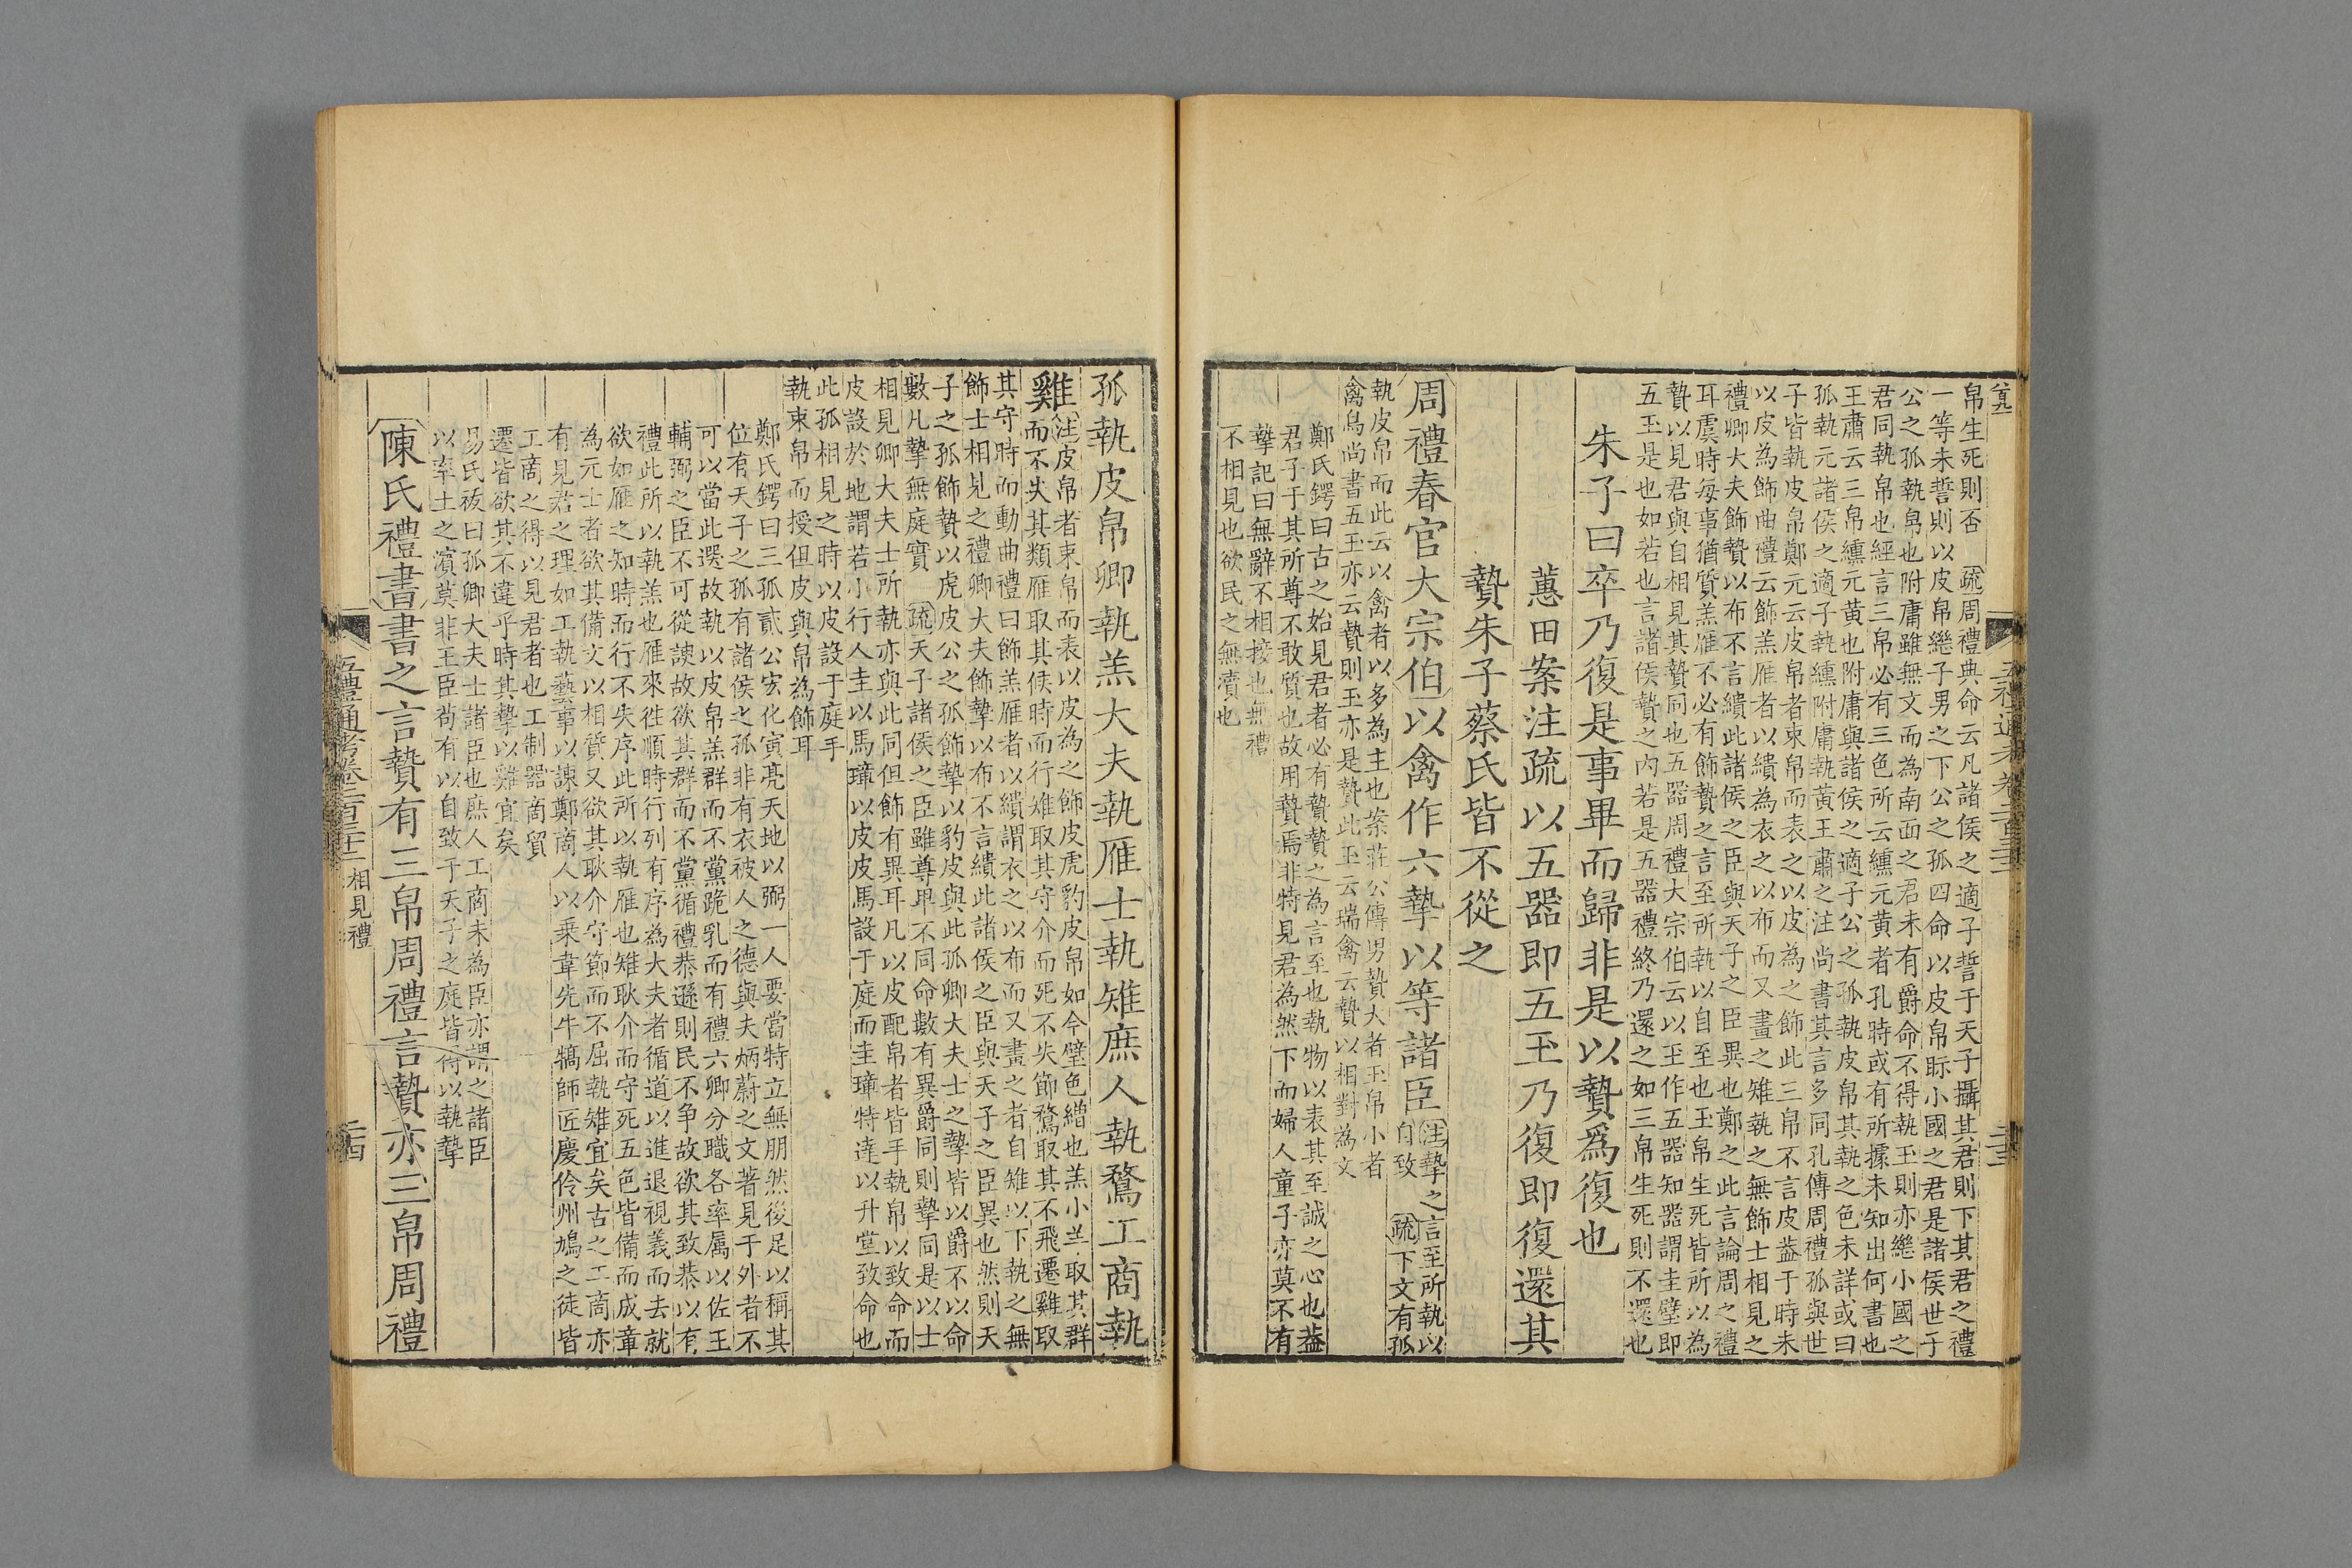 帛生死則否疏周禮典命云凡諸侯之適子誓于天子攝其君則下其君之禮
一等未誓則以皮帛繼子男之下公之孤四命以皮帛眡小國之君是諸侯世子
公之孤執帛也附庸雖無文而為南面之君未有爵命不得執玉則亦繼小國之
君同執帛也經言三帛必有三色所云纁元黃者孔時或有所據未知出何書也
王肅云三帛纁元黃也附庸與諸侯之適子公之孤執皮帛其執之色未詳或曰
孤執元諸侯之適子執纁附庸執黃王肅之注尚書其言多同孔傳周禮孤與世
子皆執皮帛鄭元云皮帛者束帛而表之以皮為之飾此三帛不言皮葢于時未
以皮為飾曲禮云飾羔雁者以繢為衣之以布而又畫之雉執之無飾士相見之
禮卿大夫飾贄以布不言繢此諸侯之臣與天子之臣異也鄭之此言論周之禮
耳虞時每事猶質羔雁不必有飾贄之言至所執以自至也玉帛生死皆所以為
贄以見君與自相見其贄同也五器周禮大宗伯云以玉作五器知器謂圭璧即
五玉是也如若也言諸侯贄之內若是五器禮終乃還之如三帛生死則不還也
朱子曰卒乃復是事畢而歸非是以贄爲復也
蕙田案注疏以五器即五玉乃復即復還其
贄朱子蔡氏皆不從之
周禮春官大宗伯以禽作六摯以等諸臣注摯之言至所執以
自致疏下文有孤
執皮帛而此云以禽者以多為主也案莊公傳男贄大者玉帛小者
禽鳥尚書五玉亦云贄則玉亦是贄此玉云瑞禽云贄以相對為文
鄭氏鍔曰古之始見君者必有贄贄之為言至也執物以表其至誠之心也葢
君子于其所尊不敢質也故用贄焉非特見君為然下而婦人童子亦莫不有
摯記曰無辭不相接也無禮
不相見也欲民之無瀆也
孤執皮帛卿執羔大夫執雁士執雉庶人執鶩工商執
雞注皮帛者束帛而表以皮為之飾皮虎豹皮帛如今璧色繒也羔小羊取其群
而不失其類雁取其候時而行雉取其守介而死不失節鶩取其不飛遷雞取
其守時而動曲禮曰飾羔雁者以繢謂衣之以布而又畫之者自雉以下執之無
飾士相見之禮卿大夫飾摯以布不言繢此諸侯之臣與天子之臣異也然則天
子之孤飾贄以虎皮公之孤飾摯以豹皮與此孤卿大夫士之摯皆以爵不以命
數凡摯無庭實疏天子諸侯之臣雖尊卑不同命數有異爵同則摯同是以士
相見卿大夫士所執亦與此同但飾有異耳凡以皮配帛者皆手執帛以致命而
皮設於地謂若小行人圭以馬璋以皮皮馬設于庭而圭璋特達以升堂致命也
此孤相見之時以皮設于庭手
執束帛而授但皮與帛為飾耳
鄭氏鍔曰三孤貳公宏化寅亮天地以弼一人要當特立無朋然後足以稱其
位有天子之孤有諸侯之孤非有衣被人之德與夫炳蔚之文著見于外者不
可以當此選故執以皮帛羔群而不黨跪乳而有禮六卿分職各率屬以佐王
輔弼之臣不可從諛故欲其群而不黨循禮恭遜則民不爭故欲其致恭以有
禮此所以執羔也雁來往順時行列有序為大夫者循道以進退視義而去就
欲如雁之知時而行不失序此所以執雁也雉耿介而守死五色皆備而成章
為元士者欲其備文以相質又欲其耿介守節而不屈執雉宜矣古之工商亦
有見君之理如工執藝事以諫鄭商人以乘韋先牛犒師匠慶伶州鳩之徒皆
工商之得以見君者也工制器商貿
遷皆欲其不違乎時其摯以雞宜矣
易氏祓曰孤卿大夫士諸臣也庶人工商未為臣亦謂之諸臣
以率土之濱莫非王臣苟有以自致于天子之庭皆得以執摯
陳氏禮書書之言贄有三帛周禮言贄亦三帛周禮
五禮通考卷二百三十二相見禮
二十四